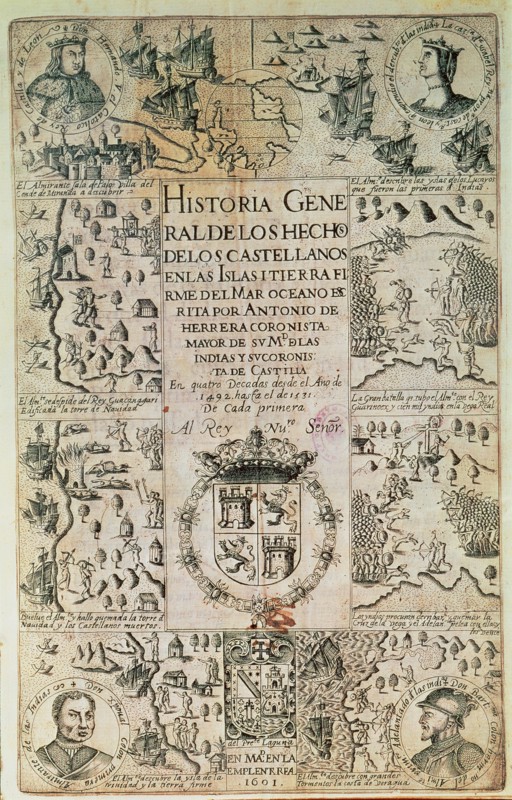 Don Hernando V el Catolico Rey de Castilla y de Leon
El Almirante sale de Palos Villa del
Conde de Miranda a descubrir
El Alm.te descubre las yslas de los Lucayos
que fueron las primeras d Indias
HISTORIA GENE
RAL DE LOS HECHOS
DE LOS CASTELLANOS
EN LAS ISLAS I TIERRA FI
RME DEL MAR OCEANO ESC
RITA POR ANTONIO DE
HERRERA CORONISTA
MAYOR DE SV M.D DE LAS
INDIAS Y SV CORONIS
TA DE CASTILLA
En quatro Decadas desde el Año de
1492 hasta el de 1531
De Cada primera
Al Rey Nu.ro Señor.
El Alm.te se despide del Rey Guacanagari
Edificada la torre de Nauidad
La Gran batalla q. tubo el Alm.te con el Rey
Guarionex y cien mil yndios en la Vega Real
Buelue el Alm.te y halla quemada la torre d
Nauidad y los Castellanos muertos.
Los yndios procuran derribar y quemar la
Cruz de la Vega y el Adelan.
Don Xpoual Colon primero Almirante de las Indias
El Alm.te descubre la ysla de la
trinidad y la tierra firme
del Pre.te Laguna
EN MAD. EN LA
EMPLENTA REA
1601.
Adelantado d las indias Don Bart. Colon
El Alm.te descubre con grandes
Tormentos la costa de Veragua